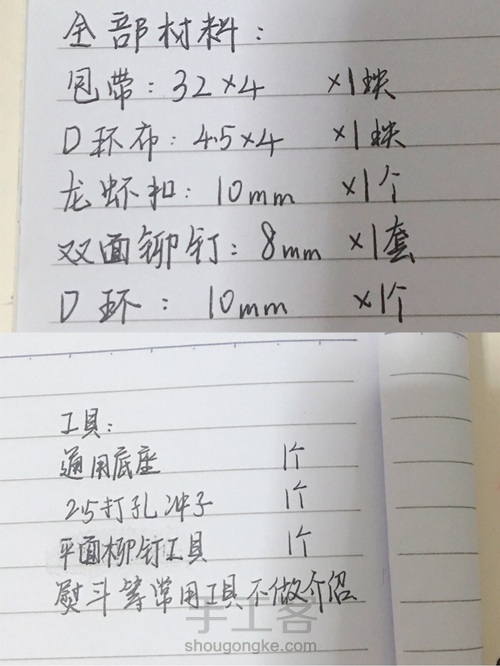 全部材料:
包带: 32×4 ×1块
D环布: 4.5×4 ×1块
龙虾扣: 10mm ×1个
双面铆钉: 8mm ×1套
D环: 10mm ×1个
工具:
通用底座 1个
2.5打孔冲子 1个
平面铆钉工具 1个
熨斗等常用工具不做介绍
手工客
shougongke.com